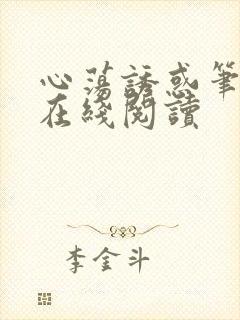 心荡誘惑筆
在綫閱讀
李金斗